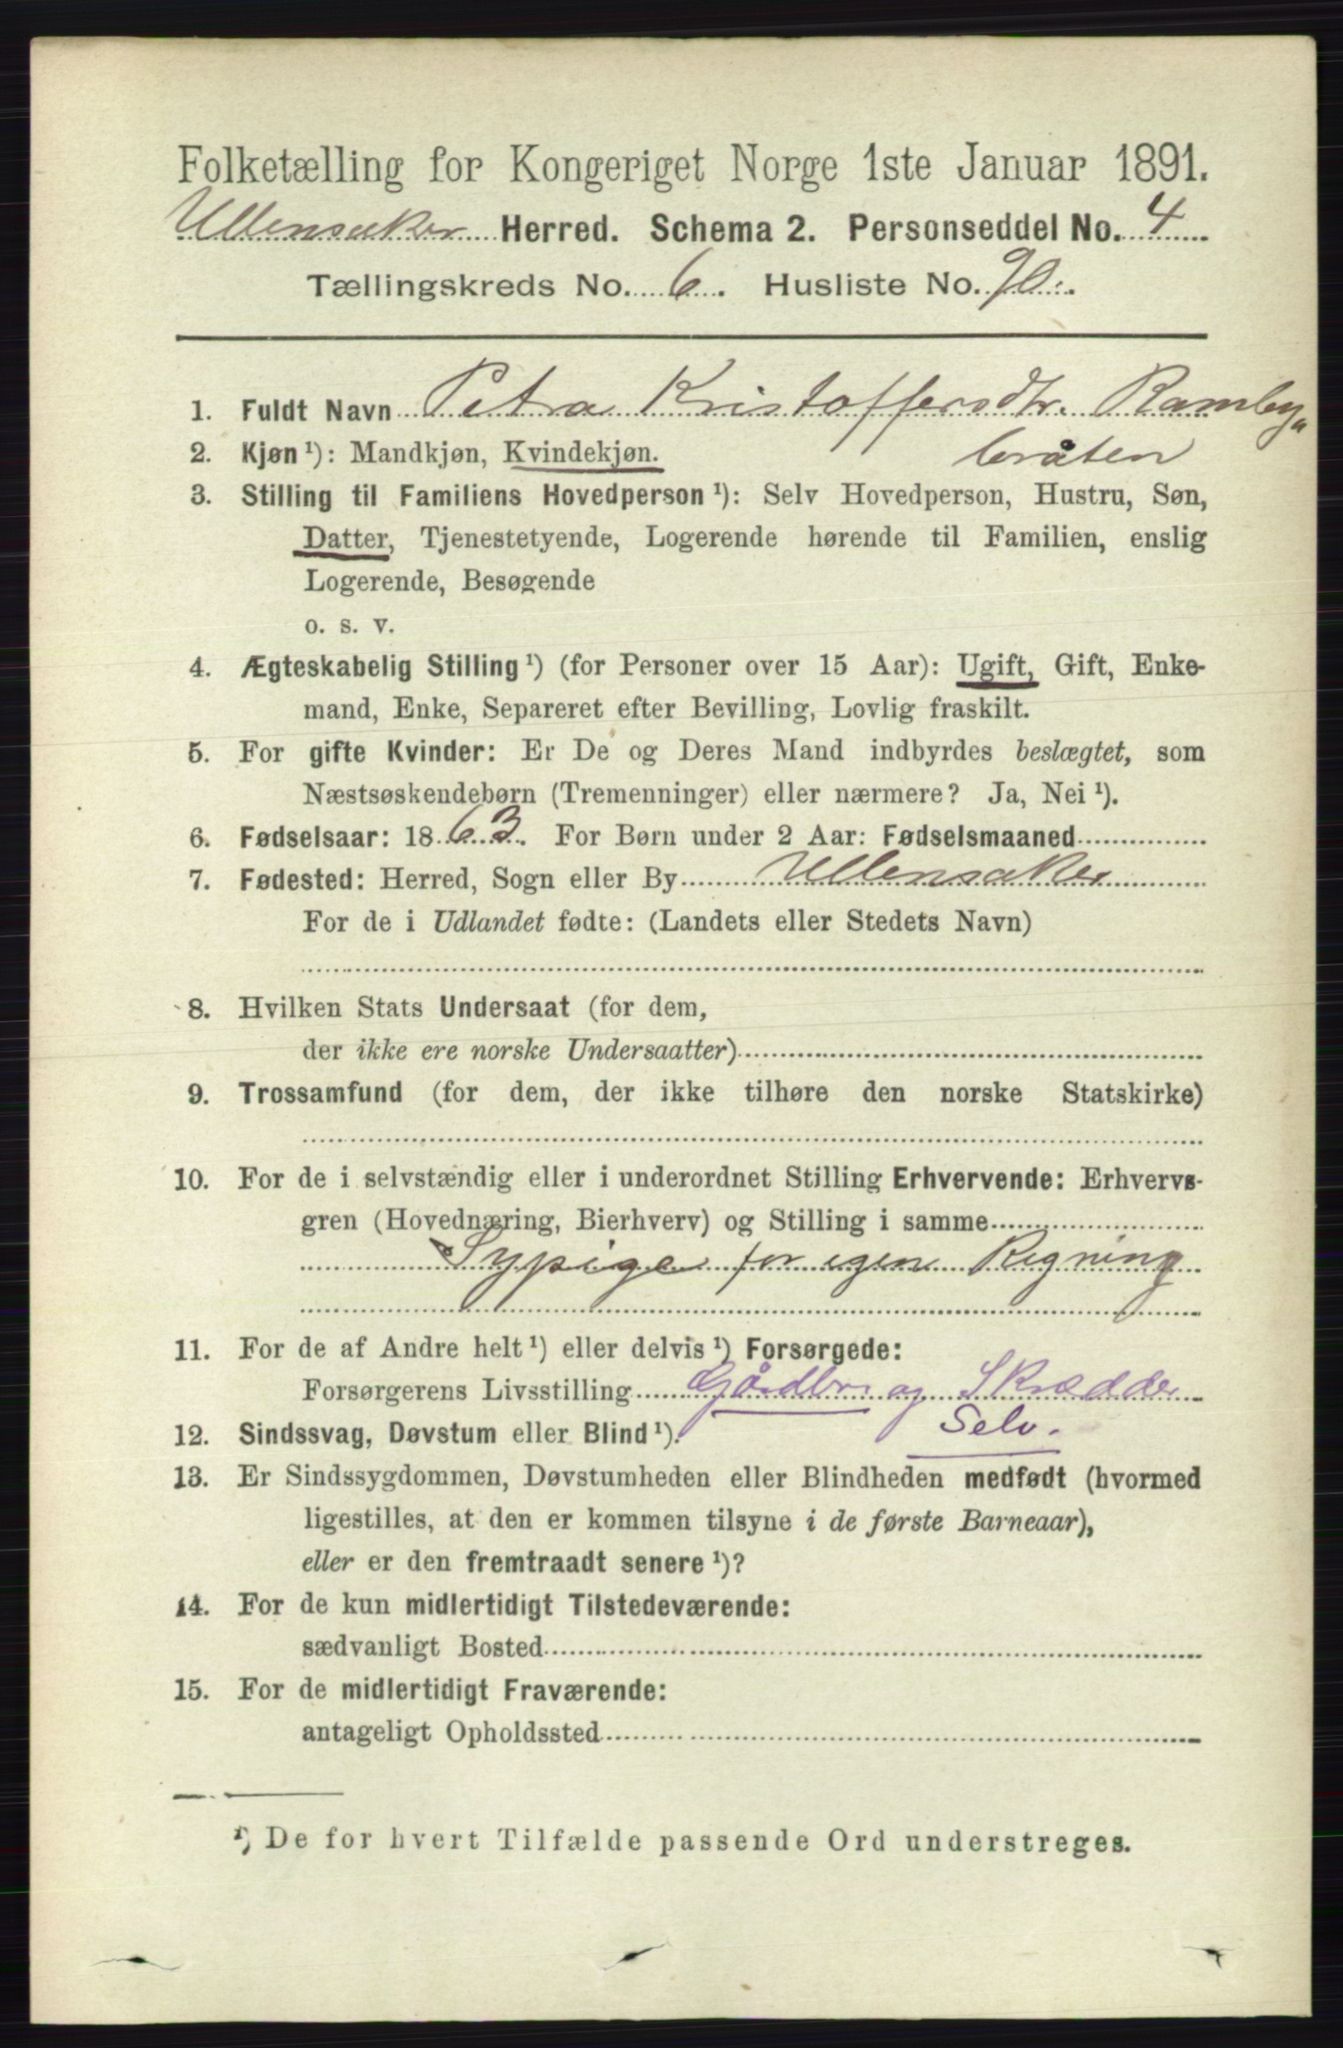 Folketælling for Kongeriget Norge 1ste Januar 1891.
Ullensaker Herred. Schema 2. Personseddel No. 4
Tællingskreds No. 6. Husliste No. 90.
1. Fuldt Navn Petra Kristoffersdtr. Ramby„
2. Kjøn ¹): Mandkjøn, Kvindekjøn. bråten
3. Stilling til Familiens Hovedperson ¹): Selv Hovedperson, Hustru, Søn,
Datter, Tjenestetyende, Logerende hørende til Familien, enslig
Logerende, Besøgende
o. s. v.
4. Ægteskabelig Stilling ¹) (for Personer over 15 Aar): Ugift, Gift, Enke-
mand, Enke, Separeret efter Bevilling, Lovlig fraskilt.
5. For gifte Kvinder: Er De og Deres Mand indbyrdes beslægtet, som
Næstsøskendebørn (Tremenninger) eller nærmere? Ja, Nei ¹).
6. Fødselsaar: 1863. For Børn under 2 Aar: Fødselsmaaned
7. Fødested: Herred, Sogn eller By Ullensaker
For de i Udlandet fødte: (Landets eller Stedets Navn)
8. Hvilken Stats Undersaat (for dem,
der ikke ere norske Undersaatter)
9. Trossamfund (for dem, der ikke tilhøre den norske Statskirke)
10. For de i selvstændig eller i underordnet Stilling Erhvervende: Erhvervs-
gren (Hovednæring, Bierhverv) og Stilling i samme
Sypige for egen Regning
11. For de af Andre helt ¹) eller delvis ¹) Forsørgede:
Forsørgerens Livsstilling Gårdbr. og Skrædder
12. Sindssvag, Døvstum eller Blind ¹). Selv.
13. Er Sindssygdommen, Døvstumheden eller Blindheden medfødt (hvormed
ligestilles, at den er kommen tilsyne i de første Barneaar),
eller er den fremtraadt senere ¹)?
14. For de kun midlertidigt Tilstedeværende:
sædvanligt Bosted
15. For de midlertidigt Fraværende:
antageligt Opholdssted
¹) De for hvert Tilfælde passende Ord understreges.